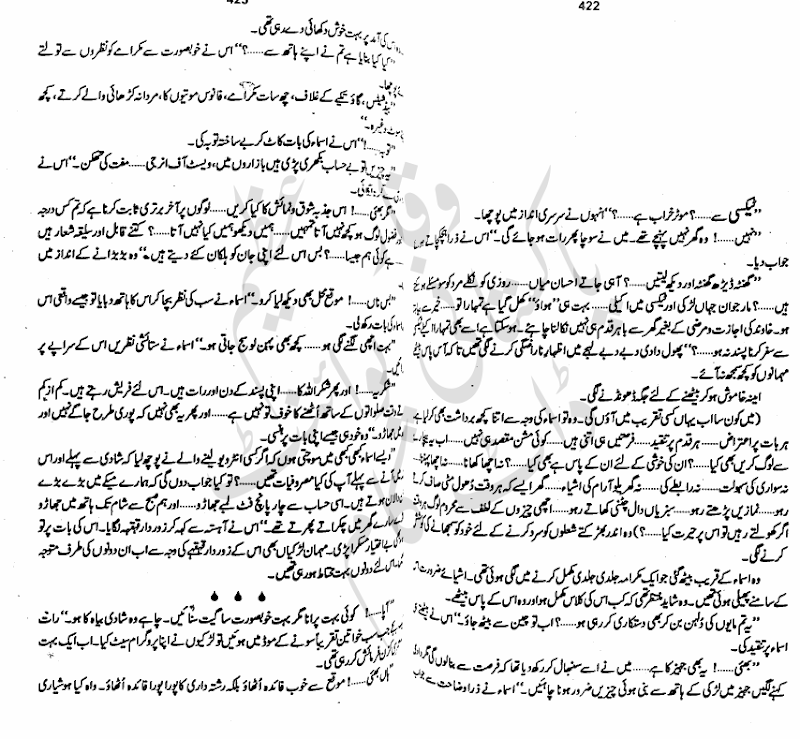 422
”ٹیکسی سے......؟ موٹر خراب ہے......؟“ انہوں نے سرسری انداز میں پوچھا۔
”نہیں......! وہ گھر نہیں پہنچے تھے۔ میں نے سوچا پھر رات ہو جائے گی۔“ اس نے ذرا ہچکچاتے ہوئے
جواب دیا۔
”گھنٹہ ڈیڑھ گھنٹہ اور دیکھ لیتیں۔......؟ آ ہی جاتے احسان میاں...... روزی کو نکلے مرد کو سو مسئلے ہوتے
ہیں......؟ مار جوان جہاں لڑکی اور ٹیکسی میں اکیلی...... بہت ہی ”ہواؤ“ کھل گیا ہے تمہارا تو...... خیر بے باز
ہو۔ خاوند کی اجازت و مرضی کے بغیر گھر سے باہر قدم ہی نہیں نکالنا چاہئے۔ ہوسکتا ہے اسے بھی تمہارا اکیلے ٹیکسی
سے سفر کرنا پسند نہ ہو......؟“ پھول دادی دبے دبے لہجے میں اظہار ناراضگی کرنے لگی تھیں تا کہ آس پاس بیٹھے
مہمانوں کو کچھ سمجھ نہ آئے۔
امینہ خاموش ہو کر بیٹھنے کے لئے جگہ ڈھونڈنے لگی۔
(میں کون سا اب یہاں کسی تقریب میں آؤں گی۔ وہ تو اسماء کی وجہ سے اتنا کچھ برداشت بھی کرلیا ہے
ہر بات پر اعتراض...... ہر قدم پر تنقید...... فرصتیں ہی اتنی ہیں...... کوئی مشن مقصد ہی نہیں...... اب یہ بچارے
سے لوگ کریں بھی کیا......؟ ان کی خوشی کے لئے ان کے پاس ہے بھی کیا......؟ نہ اچھا کھانا...... نہ اچھا پہننا
نہ سواری کی سہولت...... نہ رابطے کی...... نہ گھریلو آرام کی اشیاء...... گھر ایسے کہ ہر وقت دھول مٹی صاف کرتے
رہو...... نمازیں پڑھتے رہو...... سبزیاں دال چٹنی کھاتے رہو...... اچھی چیزوں کے لطف سے محروم لوگ ہر وقت
اگر کھولتے رہیں تو اس پر حیرت کیا......؟) وہ اندر بھڑکتے شعلوں کو سرد کرنے کے لئے خود کو سمجھانے کی کوشش
کرنے لگی۔
وہ اسماء کے قریب بیٹھ گئی جو ایک مکرامہ جلدی جلدی مکمل کرنے میں لگی ہوئی تھی۔ اشیائے ضرورت اس
کے سامنے پھیلی ہوئی تھیں۔ وہ شاید منتظر تھی کہ کب اس کی کلاس مکمل ہو اور وہ اس کے پاس بیٹھے۔
”یہ تم مایوں کی دُلہن بن کر بھی دستکاری کر رہی ہو......؟ اب تو چین سے بیٹھ جاؤ۔“ اس نے بیٹھتے ہی
اسماء پر تنقید کی۔
”بھئی......! یہ بھی جہیز کا ہے...... میں نے اسے سنبھال کر رکھ دیا تھا کہ فرصت سے بنالوں گی مگر دادی
کہنے لگیں جہیز میں لڑکی کے ہاتھ سے بنی ہوئی چیزیں ضرور ہونا چاہئیں۔“ اسماء نے ذرا وضاحت سے جواب
423
اس کی آمد پر بہت خوش دکھائی دے رہی تھی۔
”کیا کیا بنایا ہے تم نے اپنے ہاتھ سے......؟“ اس نے خوبصورت سے مکرامے کو نظروں سے تولتے
پوچھا۔
”بیڈ شیٹس، گاؤ تکیے کے غلاف، چھ سات مکرامے، فانوس موتیوں کا، مردانہ کڑھائی والے کرتے، کچھ
وغیرہ۔“
”توبہ......!“ اس نے اسماء کی بات کاٹ کر بے ساختہ توبہ کی۔
”یہ چیزیں تو بے حساب بکھری پڑی ہیں بازاروں میں، ویسٹ آف انرجی...... مفت کی تھکن۔“ اس نے
”مگر بھئی......! اس جذبہ شوق و نمائش کا کیا کریں...... لوگوں پر آخر برتری ثابت کرنا ہے کہ تم کس درجہ
فضول لوگ ہو کچھ نہیں آتا تمہیں...... ہمیں دیکھو ہمیں کیا نہیں آتا......؟ کتنے قابل اور سلیقہ شعار ہیں
ہے کوئی ہم جیسا......؟ بس اس لئے اپنی جان کو ہلکان کئے دیتے ہیں۔“ وہ بڑبڑانے کے انداز میں
”بس ناں......! موقع محل بھی دیکھ لیا کرو۔“ اسماء نے سب کی نظر بچا کر اس کا ہاتھ دبایا تو جیسے واقعی اس
اسماء کی بات رکھ لی۔
”بہت اچھی لگنے لگی ہو...... کچھ بھی پہن لو سج جاتی ہو۔“ اسماء نے ستائشی نظریں اس کے سراپے پر
”شکریہ......! اور پھر شکر اللہ کا...... اپنی پسند کے دن اور رات ہیں۔ اس لئے فریش رہتے ہیں۔ کم از کم
وقت صلواتوں کے ساتھ اُٹھنے کا خوف تو نہیں ہے...... اور پھر یہ بھی نہیں کہ پوری طرح جاگے نہیں اور
جھاڑو۔“ وہ خود ہی جیسے اپنی بات پر ہنسی۔
”ایسے اسماء! کبھی کبھی میں سوچتی ہوں کہ اگر کسی انٹرویو لینے والے نے پوچھ لیا کہ شادی سے پہلے اور اس
آنے سے پہلے آپ کی کیا مصروفیات تھیں......؟ تو کیا جواب دوں گی کہ ہمارے میکے میں بڑے بڑے
دالان ہوتے ہیں۔ اسی حساب سے چار پانچ فٹ لمبے جھاڑو...... اور ہم صبح سے شام تک ہاتھ میں جھاڑو
سارے گھر میں چکراتے پھرتے تھے۔“ اس نے آہستہ سے کہہ کر زوردار قہقہہ لگایا۔ اس کی بات پر تو
بے اختیار مسکرا پڑی۔ مہمان لڑکیاں بھی اس کے زوردار قہقہے کی وجہ سے اب ان دونوں کی طرف متوجہ
اس لئے دونوں بہت محتاط ہو رہی تھیں۔
”آپا......! کوئی بہت پرانا مگر بہت خوبصورت سا گیت سنائیں۔ چاہے وہ شادی بیاہ کا ہو۔“ رات
جب سب خواتین تقریباً سونے کے موڈ میں ہوئیں تو لڑکیوں نے اپنا پروگرام سیٹ کیا۔ اب ایک بہت
فرمائش کر رہی تھی۔
”ہاں بھئی......! موقع سے خوب فائدہ اُٹھاؤ بلکہ رشتہ داری کا پورا پورا فائدہ اُٹھاؤ۔ واہ کیا ہوشیاری